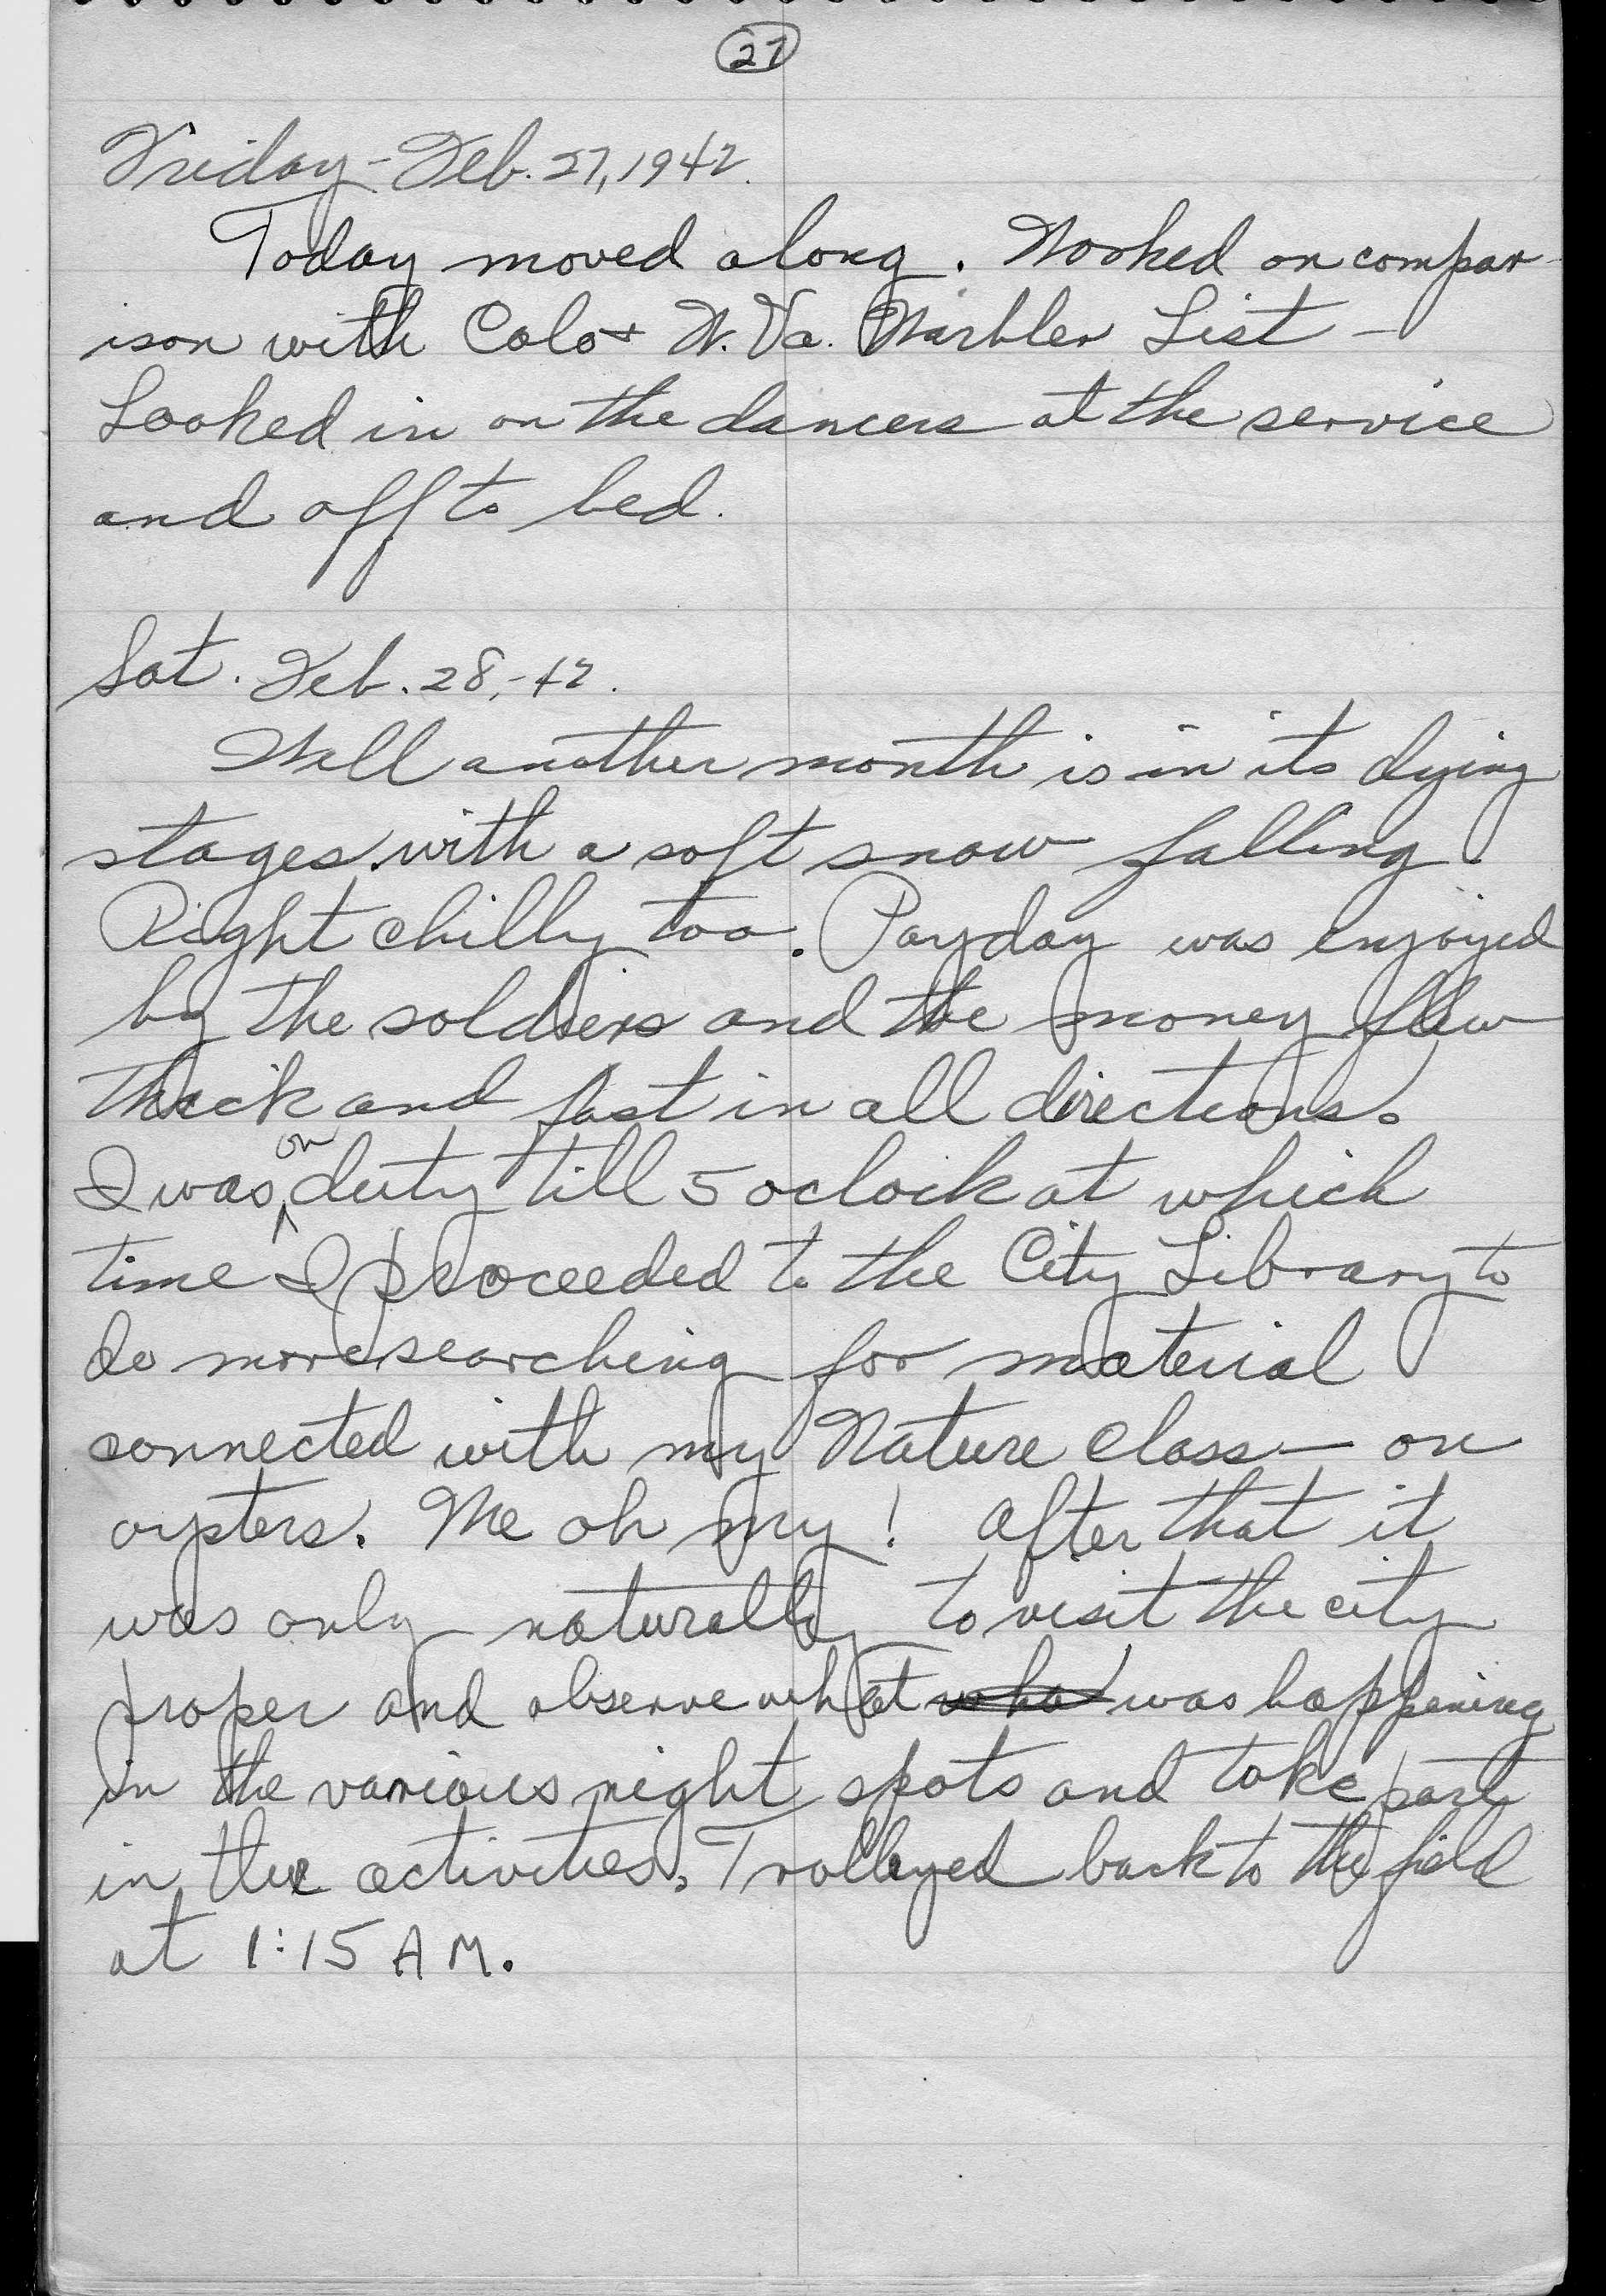 27
Friday - Feb. 27, 1942.
Today moved along. Worked on compar-
ison with Colo + W. Va. Warbler List -
Looked in on the dancers at the service
and off to bed.
Sat. Feb. 28, -42.
Well another month is in its dying
stages with a soft snow falling.
Right chilly too. Payday was enjoyed
by the soldiers and the money flew
thick and fast in all directions.
I was on duty till 5 oclock at which
time I proceeded to the City Library to
do more searching for material
connected with my Nature class - on
oysters. Me oh my! After that it
was only naturally to visit the city
proper and observe what was happening
in the various night spots and take part
in the activities. Trolleyed back to the field
at 1:15 AM.